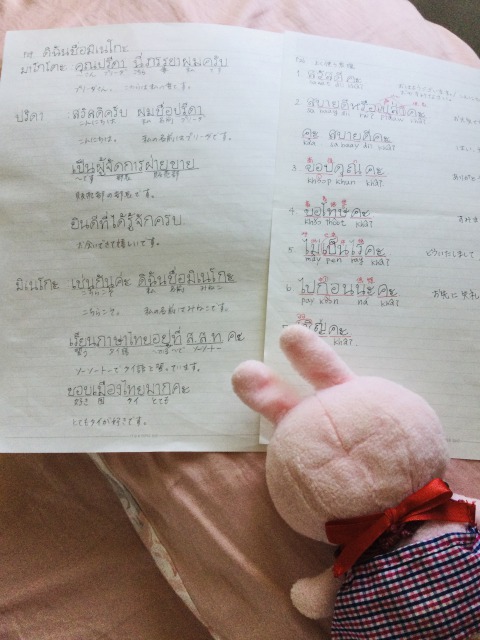 ดิฉันชื่อมิเนโกะ
มาโกโตะ : คุณปรีดา นี่ภรรยาผมครับ
プリーダさん、 こちらは私の妻です。
ปรีดา : สวัสดีครับ ผมชื่อปรีดา
こんにちは 私 名前 プリーダ
こんにちは。 私の名前はプリーダです。
เป็นผู้จัดการฝ่ายขาย
〜です 部長 販売部
販売部の部長です。
ยินดีที่ได้รู้จักครับ
お会いできて嬉しいです。
มิเนโกะ : เช่นกันค่ะ ดิฉันชื่อมิเนโกะ
こちらこそ 私 名前 みねこ
こちらこそ。 私の名前はみねこです。
เรียนภาษาไทยอยู่ที่ ส.ส.ท ค่ะ
習う タイ語 ソーソートー
ソーソートーでタイ語を習っています。
ชอบเมืองไทยมากค่ะ
好き 国 タイ とても
とてもタイが好きです。
1. สวัสดี ค่ะ
sawat dii khâ
2. สบายดีหรือเปล่าคะ
sa baay dii
ค่ะ สบายดีค่ะ
khâ sa baay dii khâ
はい、
3. ขอบคุณ ค่ะ
khɔ̀ɔp khun khâ?
ありがと
4. ขอโทษ ค่ะ
khɔ̌ɔ thôot khâ?
すみま
5. ไม่เป็นไรค่ะ
mây pen ray khâ?
どういたしまして
6. ไปก่อนนะคะ
pay kɔ̀ɔn ná khá?
お先に失礼
เชิญค่ะ
khâ?